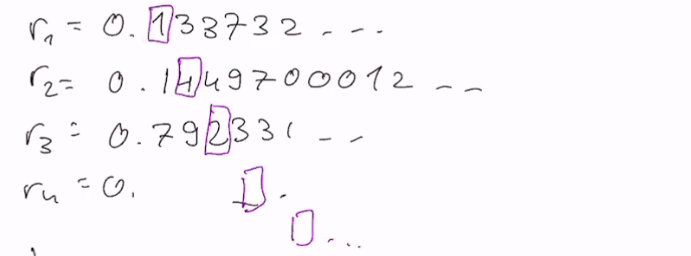 r₁ = 0.133732...
r₂ = 0.14449700012...
r₃ = 0.792331...
r₄ = 0.
...